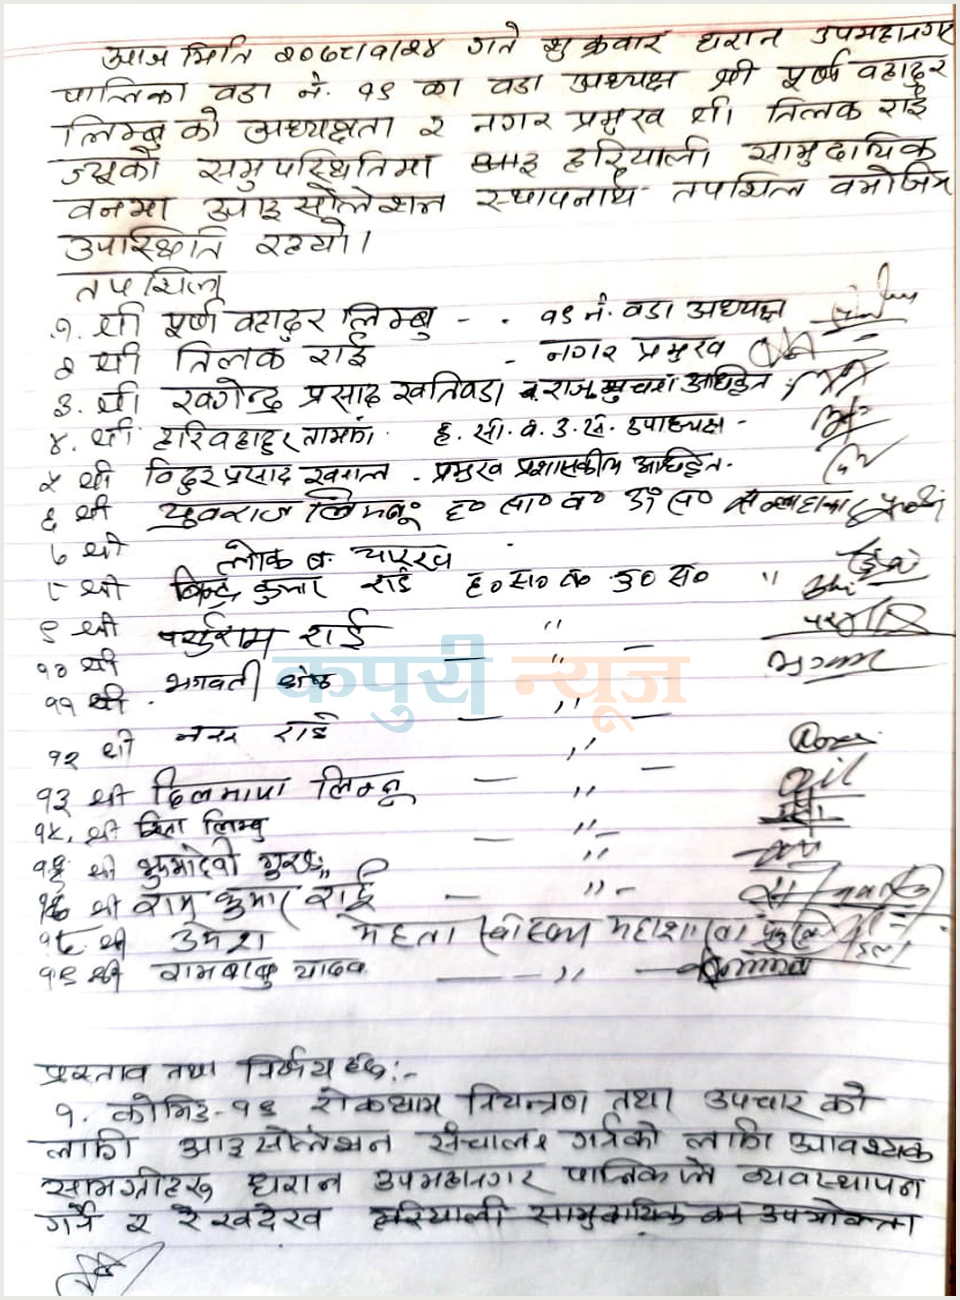 आज मिति २०७८/१/२४ गते शुक्रवार धरान उपमहानगर
पालिका वडा नं. १९ का वडा अध्यक्ष श्री पूर्ण वहादुर
लिम्बुको अध्यक्षता र नगर प्रमुख श्री तिलक राई
ज्यूको समुपस्थितिमा हरियाली सामुदायिक
वनमा आइसोलेशन स्थापनार्थ तपशिल वमोजिम
उपस्थिति रहयो।
तपशिल
१. श्री पूर्ण वहादुर लिम्बु - . १९ नं. वडा अध्यक्ष
२ श्री तिलक राई - नगर प्रमुख
३. श्री खगेन्द्र प्रसाद खतिवडा
४. श्री हरिवहादुर तामाङ ह. सा. व. उ. स. उपाध्यक्ष -
५ श्री विदुर प्रसाद खनाल . प्रमुख प्रशासकीय अधिकृत.
६ श्री युवराज लिम्बू ह० सा० व० उ० स०
७ श्री लोक ब.
८ श्री कुमार राई ह० स० व० उ० स० "
९ श्री पर्शुराम राई "
१० श्री भगवती श्रेष्ठ — " —
११ श्री नर राई — " —
१२ श्री "
१३ श्री दिलमाया लिम्बू — " —
१४. श्री लिम्बु — " -
१५ श्री गुरुङ "
१६ श्री राम कुमार राई — " -
१८ श्री उमेश मेहता
१९ श्री रामबाबु यादव — - " —
प्रस्ताव तथा निर्णय हरु:-
१. कोभिड-१९ रोकथाम नियन्त्रण तथा उपचार को
लागी आइसोलेशन संचालन गर्नको लागी आवश्यक
सामग्रीहरु धरान उपमहानगर पालिकाले व्यवस्थापन
गर्ने र रेखदेख हरियाली सामुदायिक वन उपभोक्ता
कपुरी न्यूज